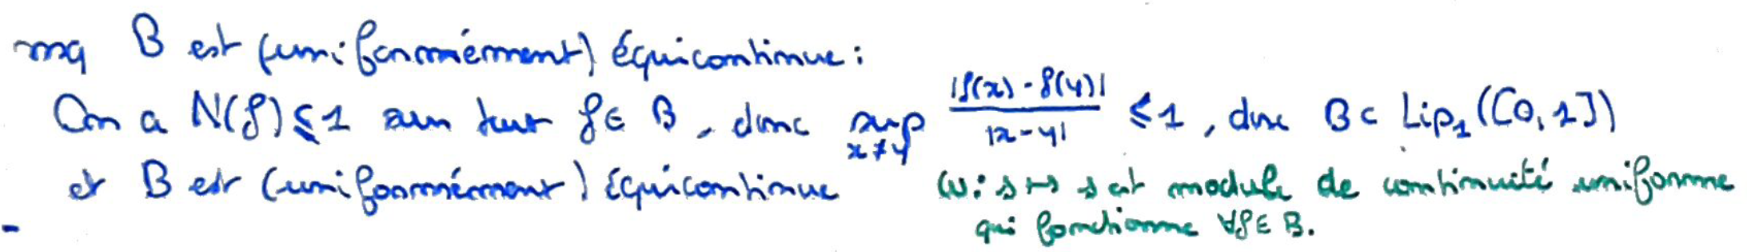 mq B est (uniformément) équicontinue :
On a N(f) ≤ 1 sur tout f ∈ B, donc sup_{x≠y} |f(x) - f(y)| / |x - y| ≤ 1, donc B ⊂ Lip₁([0,1])
et B est (uniformément) équicontinue ω : s ↦ s est module de continuité uniforme
qui fonctionne ∀f ∈ B.